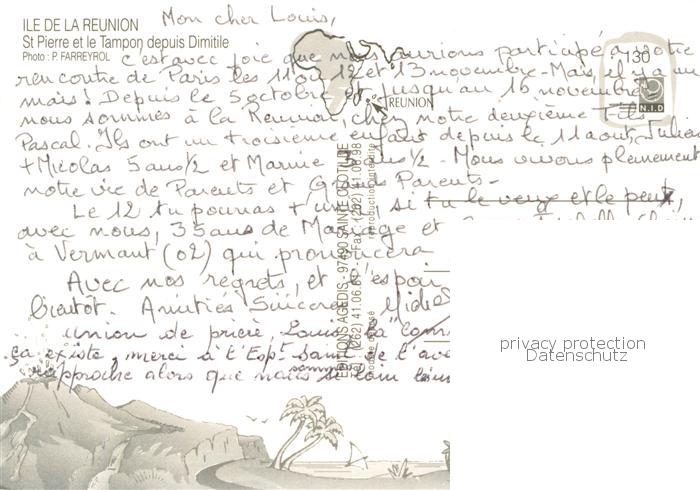 ILE DE LA REUNION
St Pierre et le Tampon depuis Dimitile
Photo : P. FARREYROL
Mon cher Louis,
c'est avec joie que nous aurions participé à votre
rencontre de Paris les 11 ou 12 et 13 novembre - Mais il y a un
mais ! Depuis le 5 octobre et jusqu'au 16 novembre
nous sommes à la Réunion, chez notre deuxième fils
Pascal. Ils ont un troisième enfant depuis le 11 aout, Julien
+ Nicolas 5 ans 1/2 et Marine 3 ans 1/2 - Nous vivons pleinement
notre vie de Parents et Grands Parents -
Le 12 tu pourras + unir, si tu le veux et le peux,
avec nous, 35 ans de Mariage et
à Vermant (02) qui prononcera
Avec nos regrets, et l'espoir
Bientôt. Amitiés Sincères
union de prière, Louis, la
ça existe, merci à l'Espt Saint de l'
rapproche alors que nous sommes si loin
REUNION
130
N.I.D
EDITIONS AGEDIS - 97490 SAINTE CLOTILDE
Tél. (262) 41.06.61 - Fax : (262) 41.06.98
reproduction interdite
privacy protection
Datenschutz